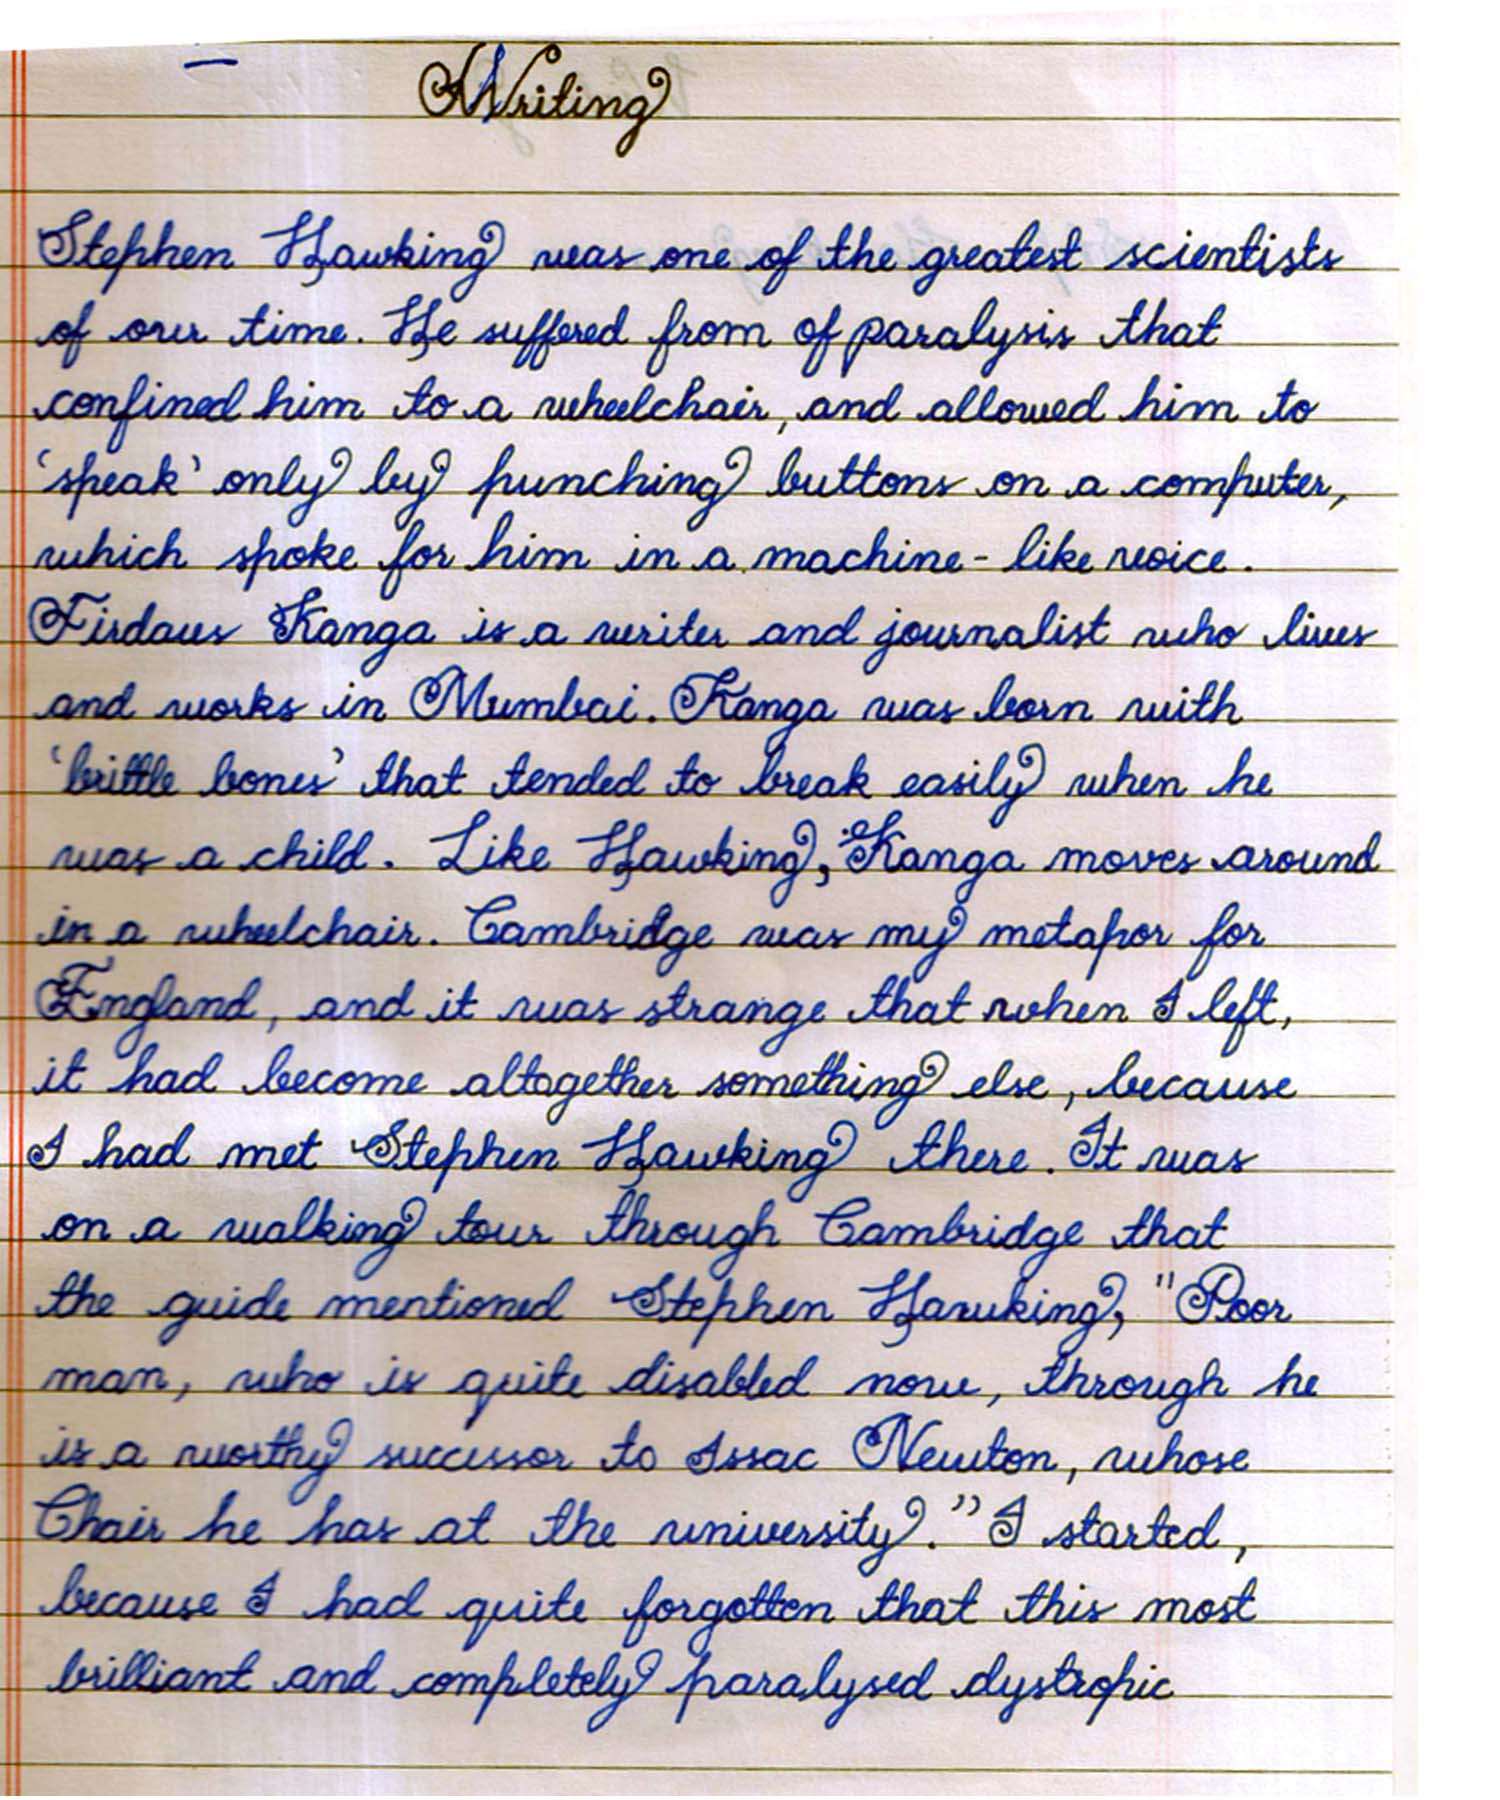 Writing
Stephen Hawking was one of the greatest scientists
of our time. He suffered from of paralysis that
confined him to a wheelchair, and allowed him to
'speak' only by punching buttons on a computer,
which spoke for him in a machine-like voice.
Firdaus Kanga is a writer and journalist who lives
and works in Mumbai. Kanga was born with
'brittle bones' that tended to break easily when he
was a child. Like Hawking, Kanga moves around
in a wheelchair. Cambridge was my metapor for
England, and it was strange that when I left,
it had become altogether something else, because
I had met Stephen Hawking there. It was
on a walking tour through Cambridge that
the guide mentioned Stephen Hawking, "Poor
man, who is quite disabled now, through he
is a worthy successor to Issac Newton, whose
Chair he has at the university." I started,
because I had quite forgotten that this most
brilliant and completely paralysed dystropic